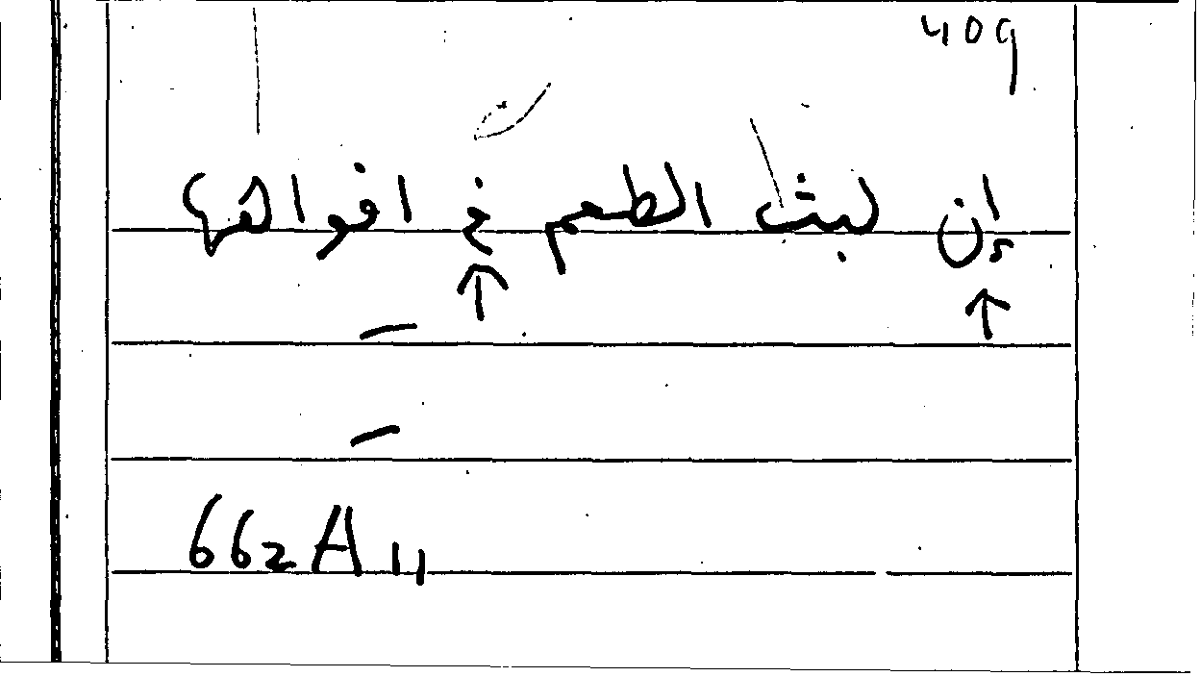 409
إن لبث الطعم في افواهها
662A11